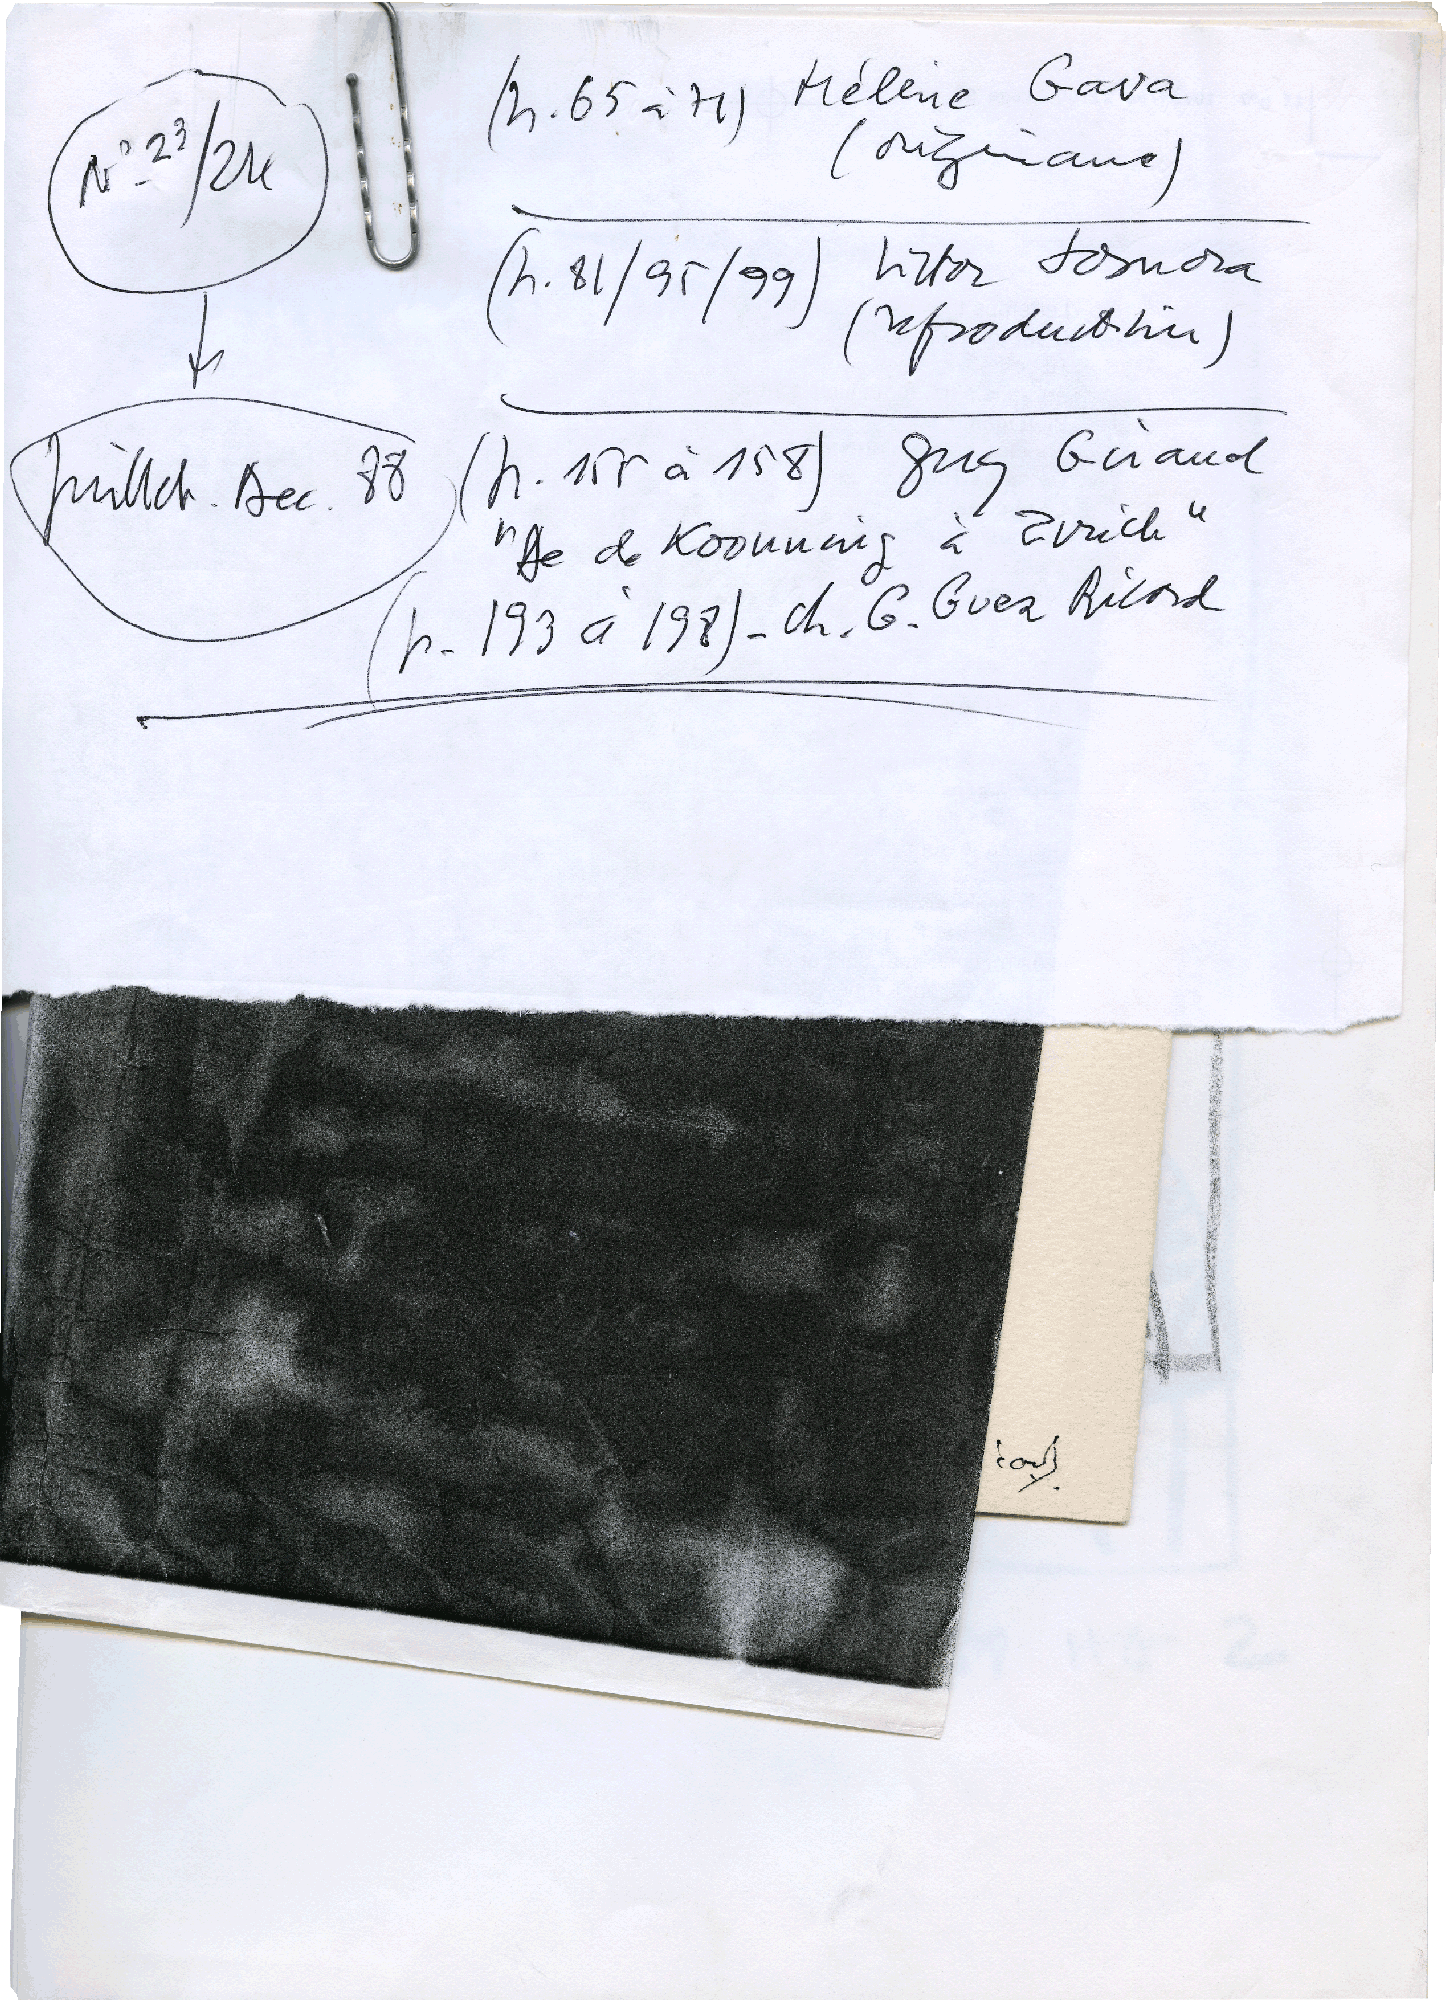 N° 23/24
Juillet. Dec. 88
(p. 65 à 71) Hélène Gava
(originaux)
(p. 81/95/99)
(reproduction)
(p. 155 à 158) Guy Giraud
"De de Kooning à Zurich"
(p. 193 à 198) - Ch. G. Guez Ricord